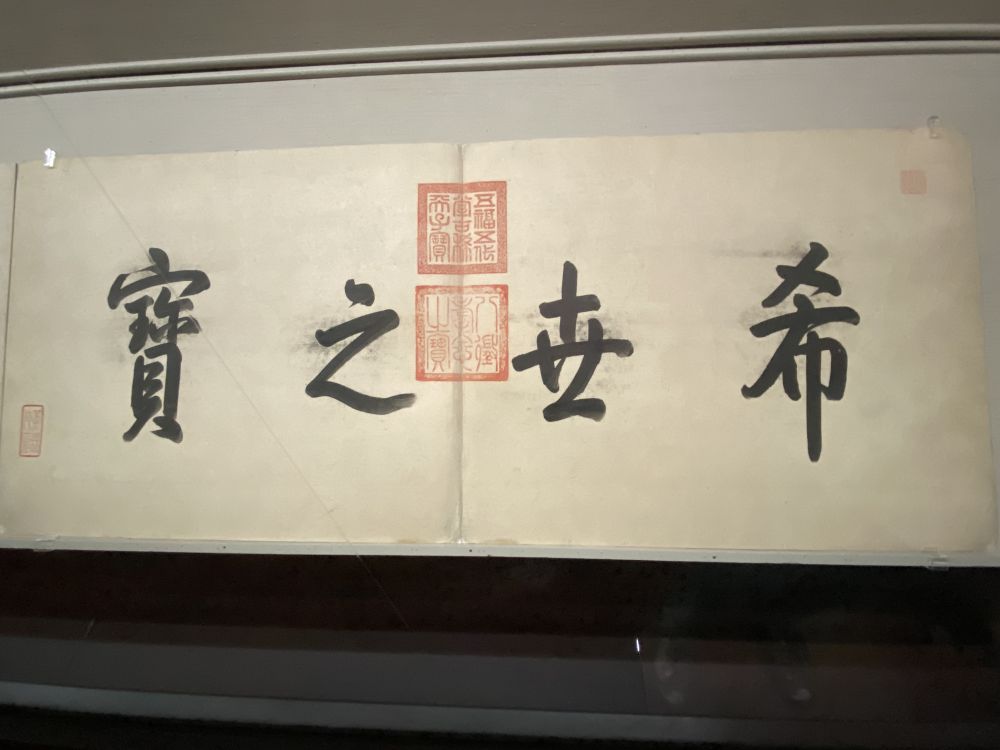 希世之寶
五福五代堂古稀天子寶
八徵耄念之寶